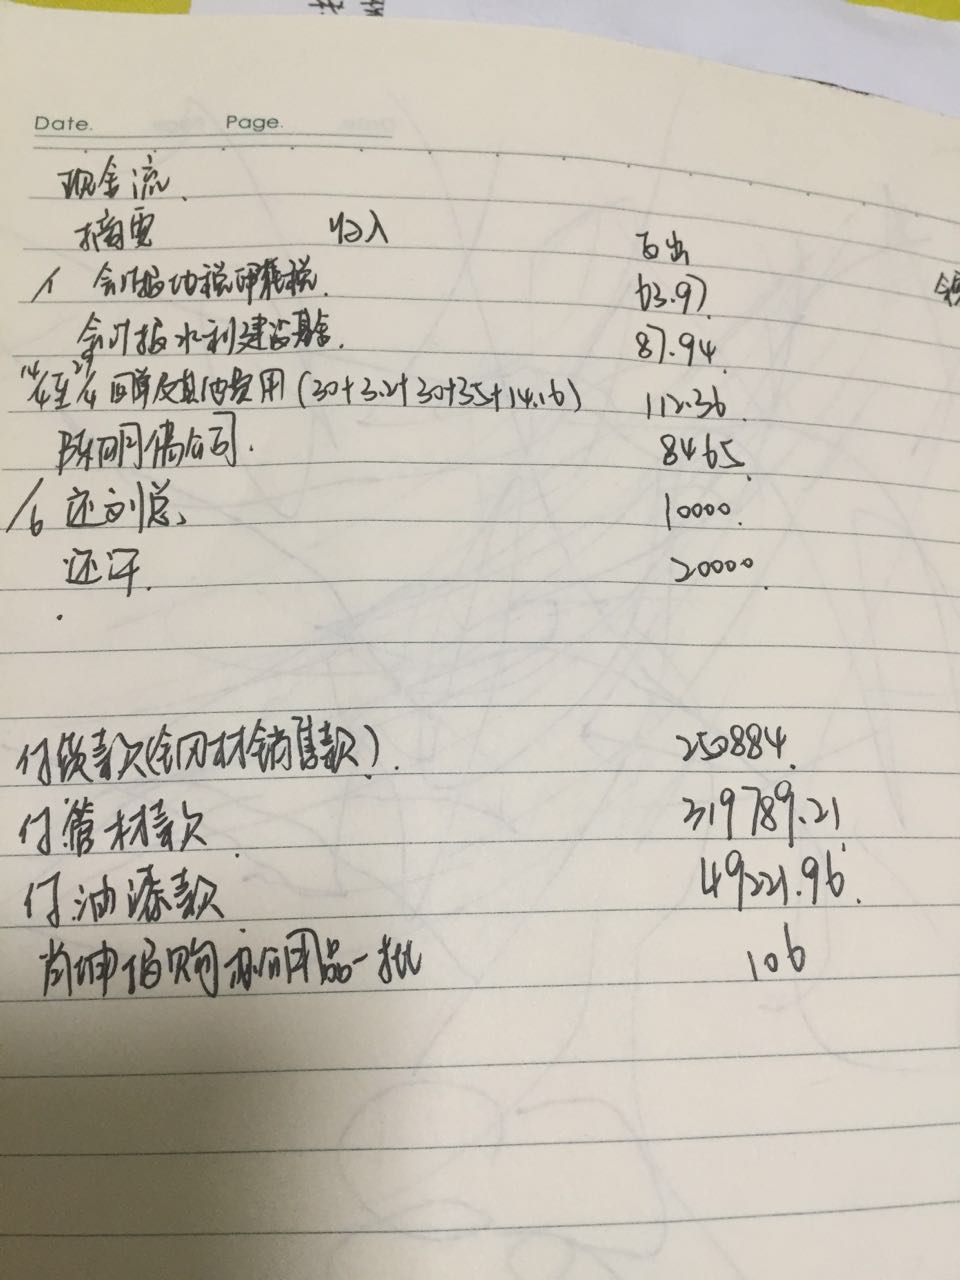 Date. Page.
现金流
摘要 收入 支出
会计报地税印花税 63.97
会计报水利建设基金 87.94
14/4至29/4 回单及其他费用(30+3.2+30+35+14.16) 112.36
陈明借公司 8465
/6 还刘总 10000
还汗 20000
付货款(含钢材销售款) 250884
付管材款 319789.21
付油漆款 49221.96
肖坤伯购办公用品一批 106